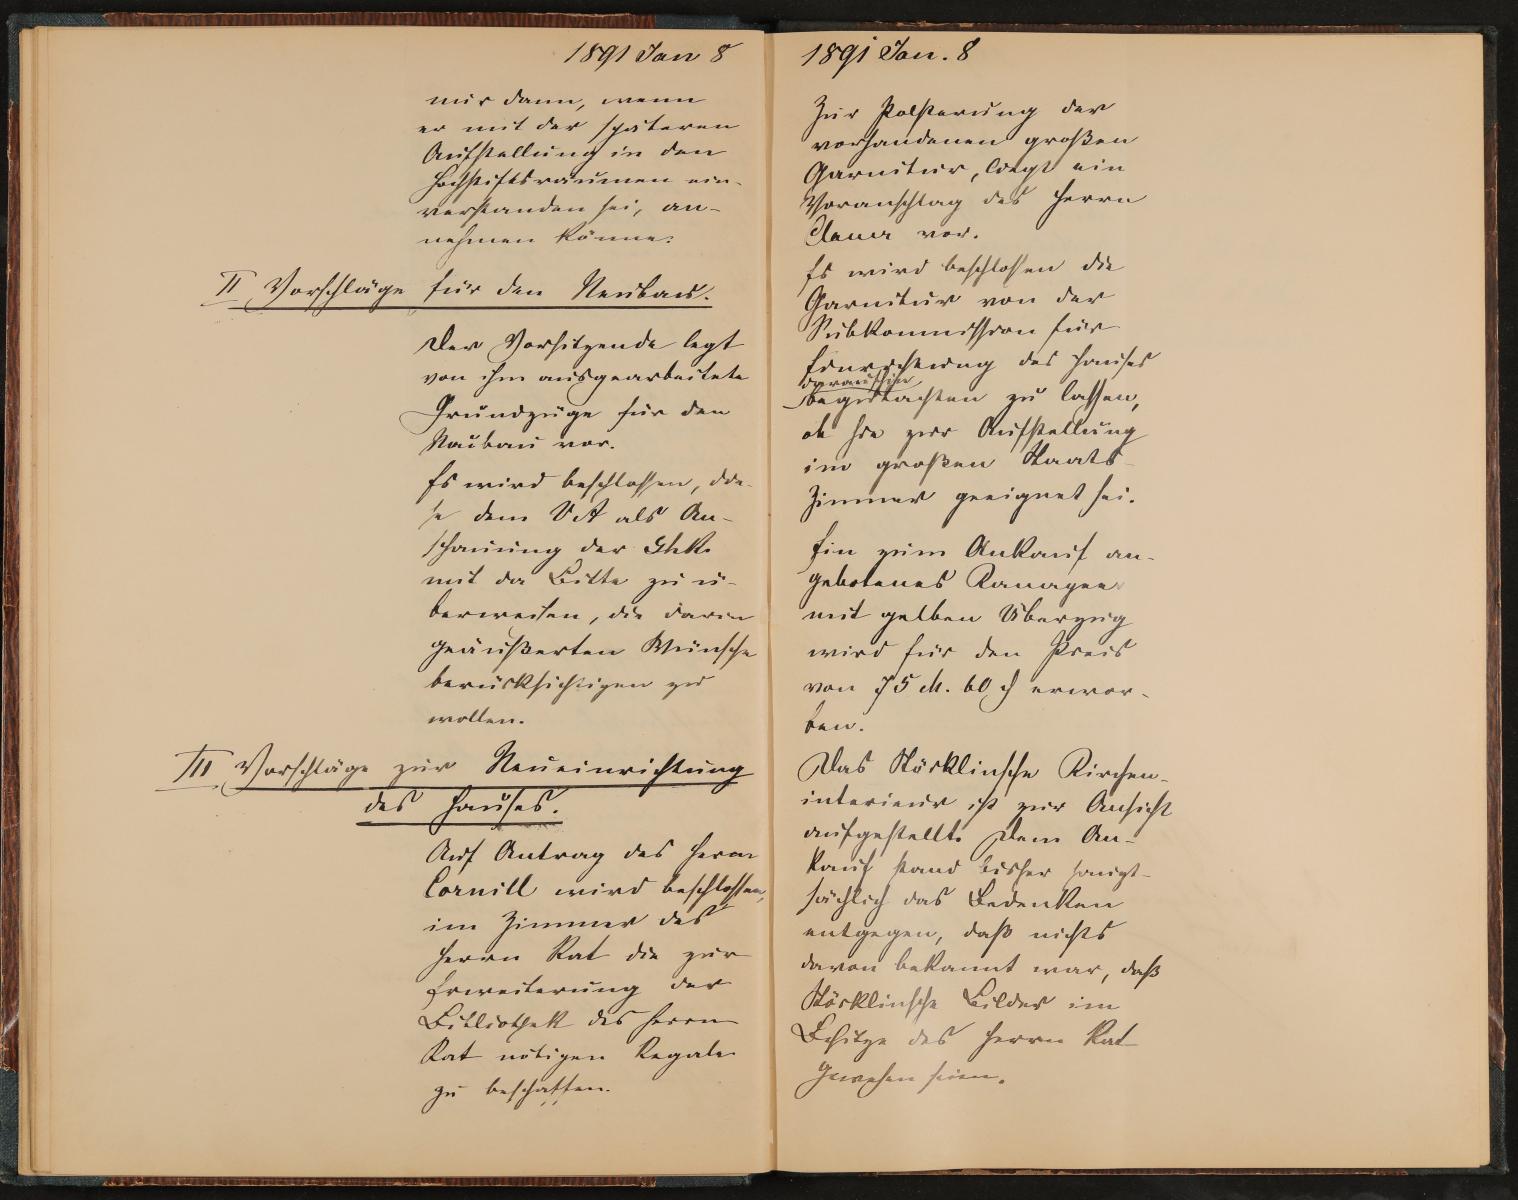 1891 Jan 8
nur dann, wenn
er mit der späteren
Aufstellung in den
Hochstiftsräumen ein-
verstanden sei, an-
nehmen könne.
II Vorschläge für den Neubau.
Der Vorsitzende legt
von ihm ausgearbeitete
Grundzüge für den
Neubau vor.
Es wird beschlossen, die-
se dem VA als An-
schauung der GhK.
mit der Bitte zu ü-
berweisen, die darin
geäußerten Wünsche
berücksichtigen zu
wollen.
III Vorschläge zur Neueinrichtung
des Hauses.
Auf Antrag des Herrn
Cornill wird beschlossen,
im Zimmer des
Herrn Rat die zur
Erweiterung der
Bibliothek des Herrn
Rat nötigen Regale
zu beschaffen.
1891 Jan. 8
Zur Polsterung der
vorhandenen großen
Garnitur, liegt ein
Voranschlag des Herrn
vor.
Es wird beschlossen die
Garnitur von der
Subkommission für
Einrichtung des Hauses
daraufhin
begutachten zu lassen,
ob sie zur Aufstellung
im großen Staats-
Zimmer geeignet sei.
Ein zum Ankauf an-
gebotenes Kanapee
mit gelben Überzug
wird für den Preis
von 75 M. 60 ₰ erwor-
ben.
Das Stöcklinsche Kirchen-
interieur ist zur Ansicht
aufgestellt. Dem An-
kauf stand bisher haupt-
sächlich das Bedenken
entgegen, daß nichts
davon bekannt war, daß
Stöcklinsche Bilder im
Besitze des Herrn Rat
gewesen seien.